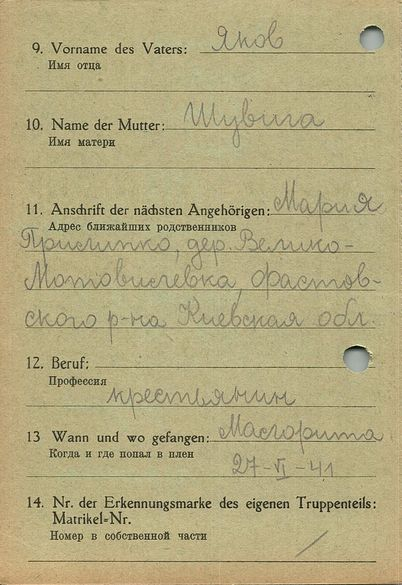 9. Vorname des Vaters: Яков
Имя отца
10. Name der Mutter: Шувига
Имя матери
11. Anschrift der nächsten Angehörigen: Мария
Адрес ближайших родственников
Прилипко, дер. Велико-
Мотовилевка, Фастов-
ского р-на Киевская обл.
12. Beruf:
Профессия
крестьянин
13 Wann und wo gefangen:
Когда и где попал в плен
27-VI-41
14. Nr. der Erkennungsmarke des eigenen Truppenteils:
Matrikel-Nr.
Номер в собственной части
/